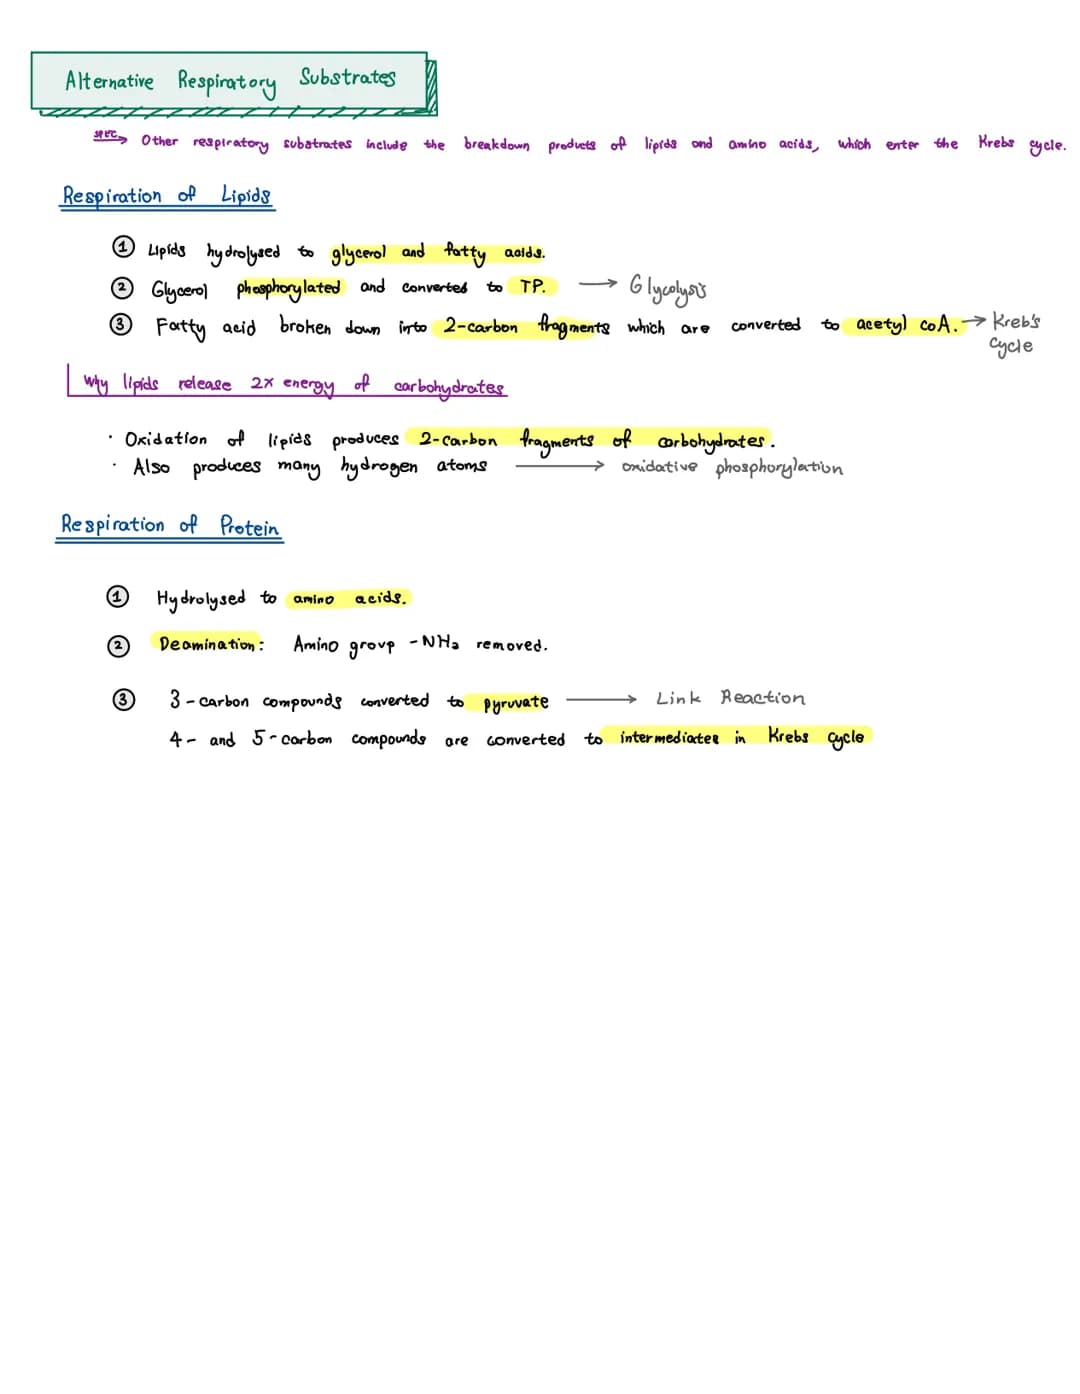 Alternative Respiratory Substrates
SPEC→ Other respiratory substrates include the breakdown products of lipids and amino acids, which enter the Krebs cycle.
Respiration of Lipids
① Lipids hydrolysed to glycerol and fatty acids.
② Glycerol phosphorylated and converted to TP. → Glycolysis
③ Fatty acid broken down into 2-carbon fragments which are converted to acetyl coA. → Kreb's
cycle
Why lipids release 2x energy of carbohydrates
· Oxidation of lipids produces 2-carbon fragments of carbohydrates.
· Also produces many hydrogen atoms → oxidative phosphorylation
Respiration of Protein
① Hydrolysed to amino acids.
② Deamination: Amino group -NH₂ removed.
③ 3-carbon compounds converted to pyruvate → Link Reaction
4- and 5-carbon compounds are converted to intermediates in Krebs cycle